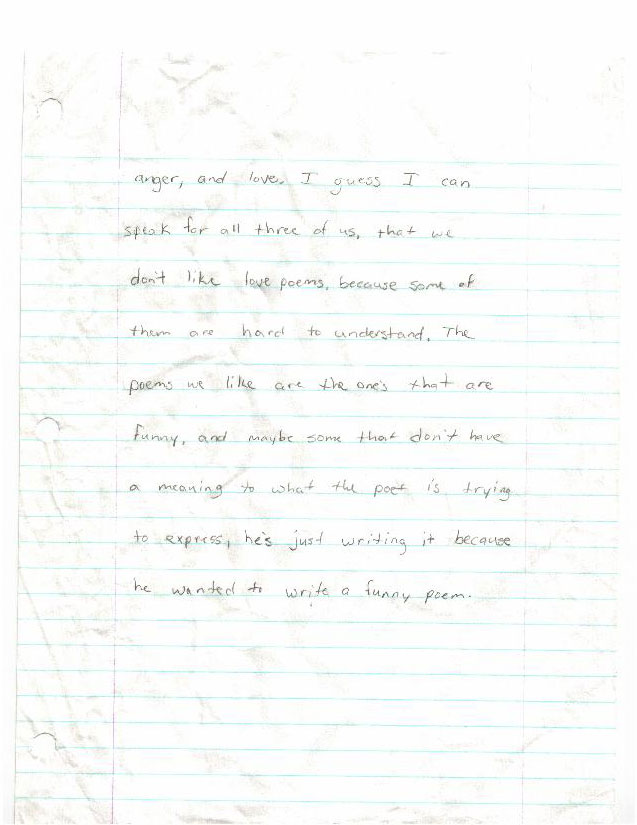 anger, and love. I guess I can
speak for all three of us, that we
don't like love poems, because some of
them are hard to understand. The
poems we like are the one's that are
funny, and maybe some that don't have
a meaning to what the poet is trying
to express, he's just writing it because
he wanted to write a funny poem.